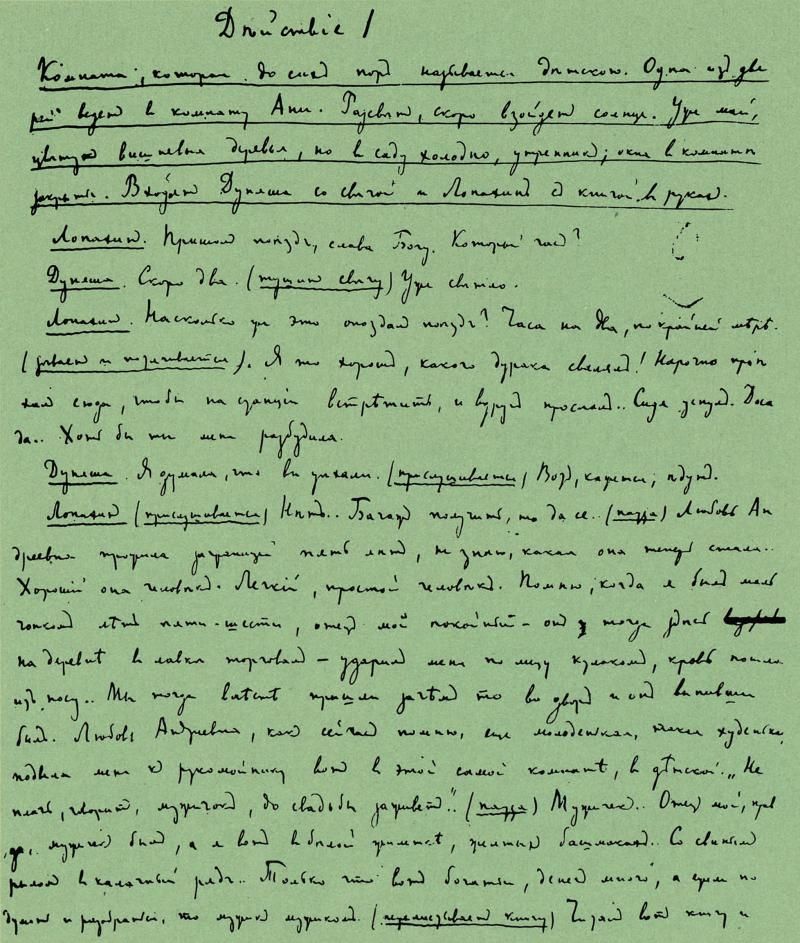 Дѣйствіе 1
Комната, которая до сихъ поръ называется дѣтскою. Одна изъ две
рей ведетъ в комнату Ани. Разсвѣтъ, скоро взойдетъ солнце. Уже май,
цвѣтутъ вишневыя деревья, но в саду холодно, утренник; окна в комнатѣ
закрыты. Входятъ Дуняша со свѣчой и Лопахинъ с книгой в руках.
Лопахинъ. Пришелъ поѣздъ, слава Богу. Который час?
Дуняша. Скоро два. (тушитъ свѣчу) Уже свѣтло.
Лопахинъ. Насколько же это опоздалъ поѣздъ? Часа на два, по крайней мѣрѣ.
(зѣваетъ и потягивается). Я то хорошъ, какого дурака свалялъ! Нарочно пріѣ
халъ сюда, чтобы на станціи встрѣтить, и вдругъ проспалъ.. Сидя уснулъ. Доса
да.. Хоть бы ты меня разбудила.
Дуняша. Я думала, что вы уѣхали. (прислушивается) Вотъ, кажется, ѣдутъ.
Лопахинъ (прислушивается) Нѣтъ.. Багажъ получить, то да се.. (пауза) Любовь Ан
древна прожила заграницей пять лѣтъ, не знаю, какая она теперь стала..
Хорошій она человѣкъ. Легкій, простой человѣкъ. Помню, когда я былъ маль
чонкомъ лѣтъ пяти-шести, отецъ мой покойный — онъ тогда здѣсь
на деревнѣ в лавкѣ торговалъ — ударилъ меня по лицу кулакомъ, кровь пошла
изъ носу.. Мы тогда вмѣстѣ пришли зачѣмъ то во дворъ и онъ выпивши
былъ. Любовь Андреевна, какъ сейчас помню, еще молоденькая, такая худенькая,
подвела меня къ рукомойнику вотъ в этой самой комнатѣ, в дѣтской. „Не
плачь, говоритъ, мужичокъ, до свадьбы заживетъ.." (пауза) Мужичек.. Отецъ мой, прав
да, мужикъ былъ, а я вотъ в бѣлой жилеткѣ, желтыхъ башмакахъ. Со свинымъ
рыломъ в калачный рядъ.. Только что вотъ богатый, денегъ много, а ежели по
думать и разобраться, то мужикъ мужикомъ. (перелистываетъ книгу) Читалъ вотъ книгу и